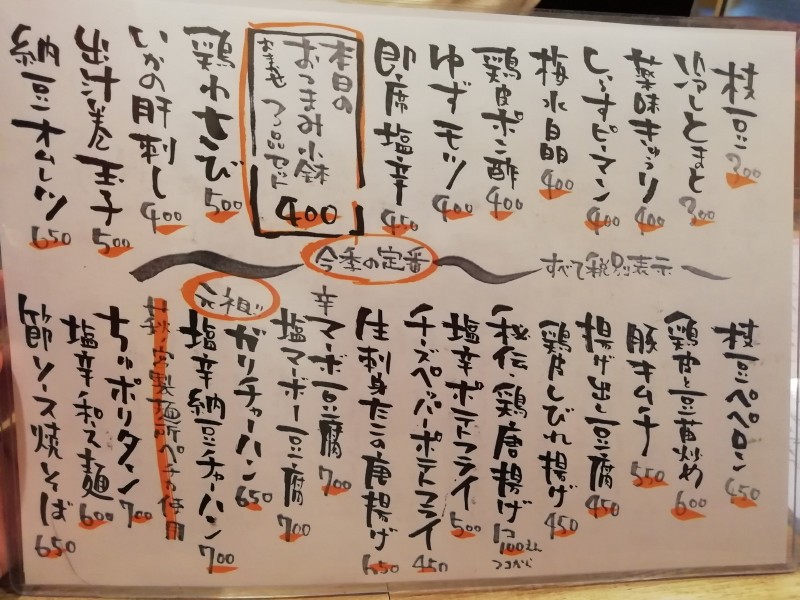 枝豆 300
冷しとまと 300
薬味きゅうり 400
しらすピーマン 400
梅水晶 400
鶏皮ポン酢 400
ゆずモツ 400
即席塩辛 450
本日の
おつまみ小鉢
おまかせ 3品セット
400
鶏わさび 500
いかの肝刺し 400
出汁巻玉子 500
納豆オムレツ 650
今季の定番
すべて税別表示
枝豆ペペロン 450
鶏皮と豆苗炒め 600
豚キムチ 550
揚げ出し豆腐 450
鶏皮しびれ揚げ 450
秘伝 鶏唐揚げ 1コ 100えん
2コから
塩辛ポテトフライ 500
チーズペッパーポテトフライ 450
生刺身たこの唐揚げ 650
辛マーボー豆腐 700
塩マーボー豆腐 700
ガリチャーハン 650
元祖
塩辛納豆チャーハン 700
ちゃポリタン 700
塩辛和え麺 600
節ソース焼そば 650